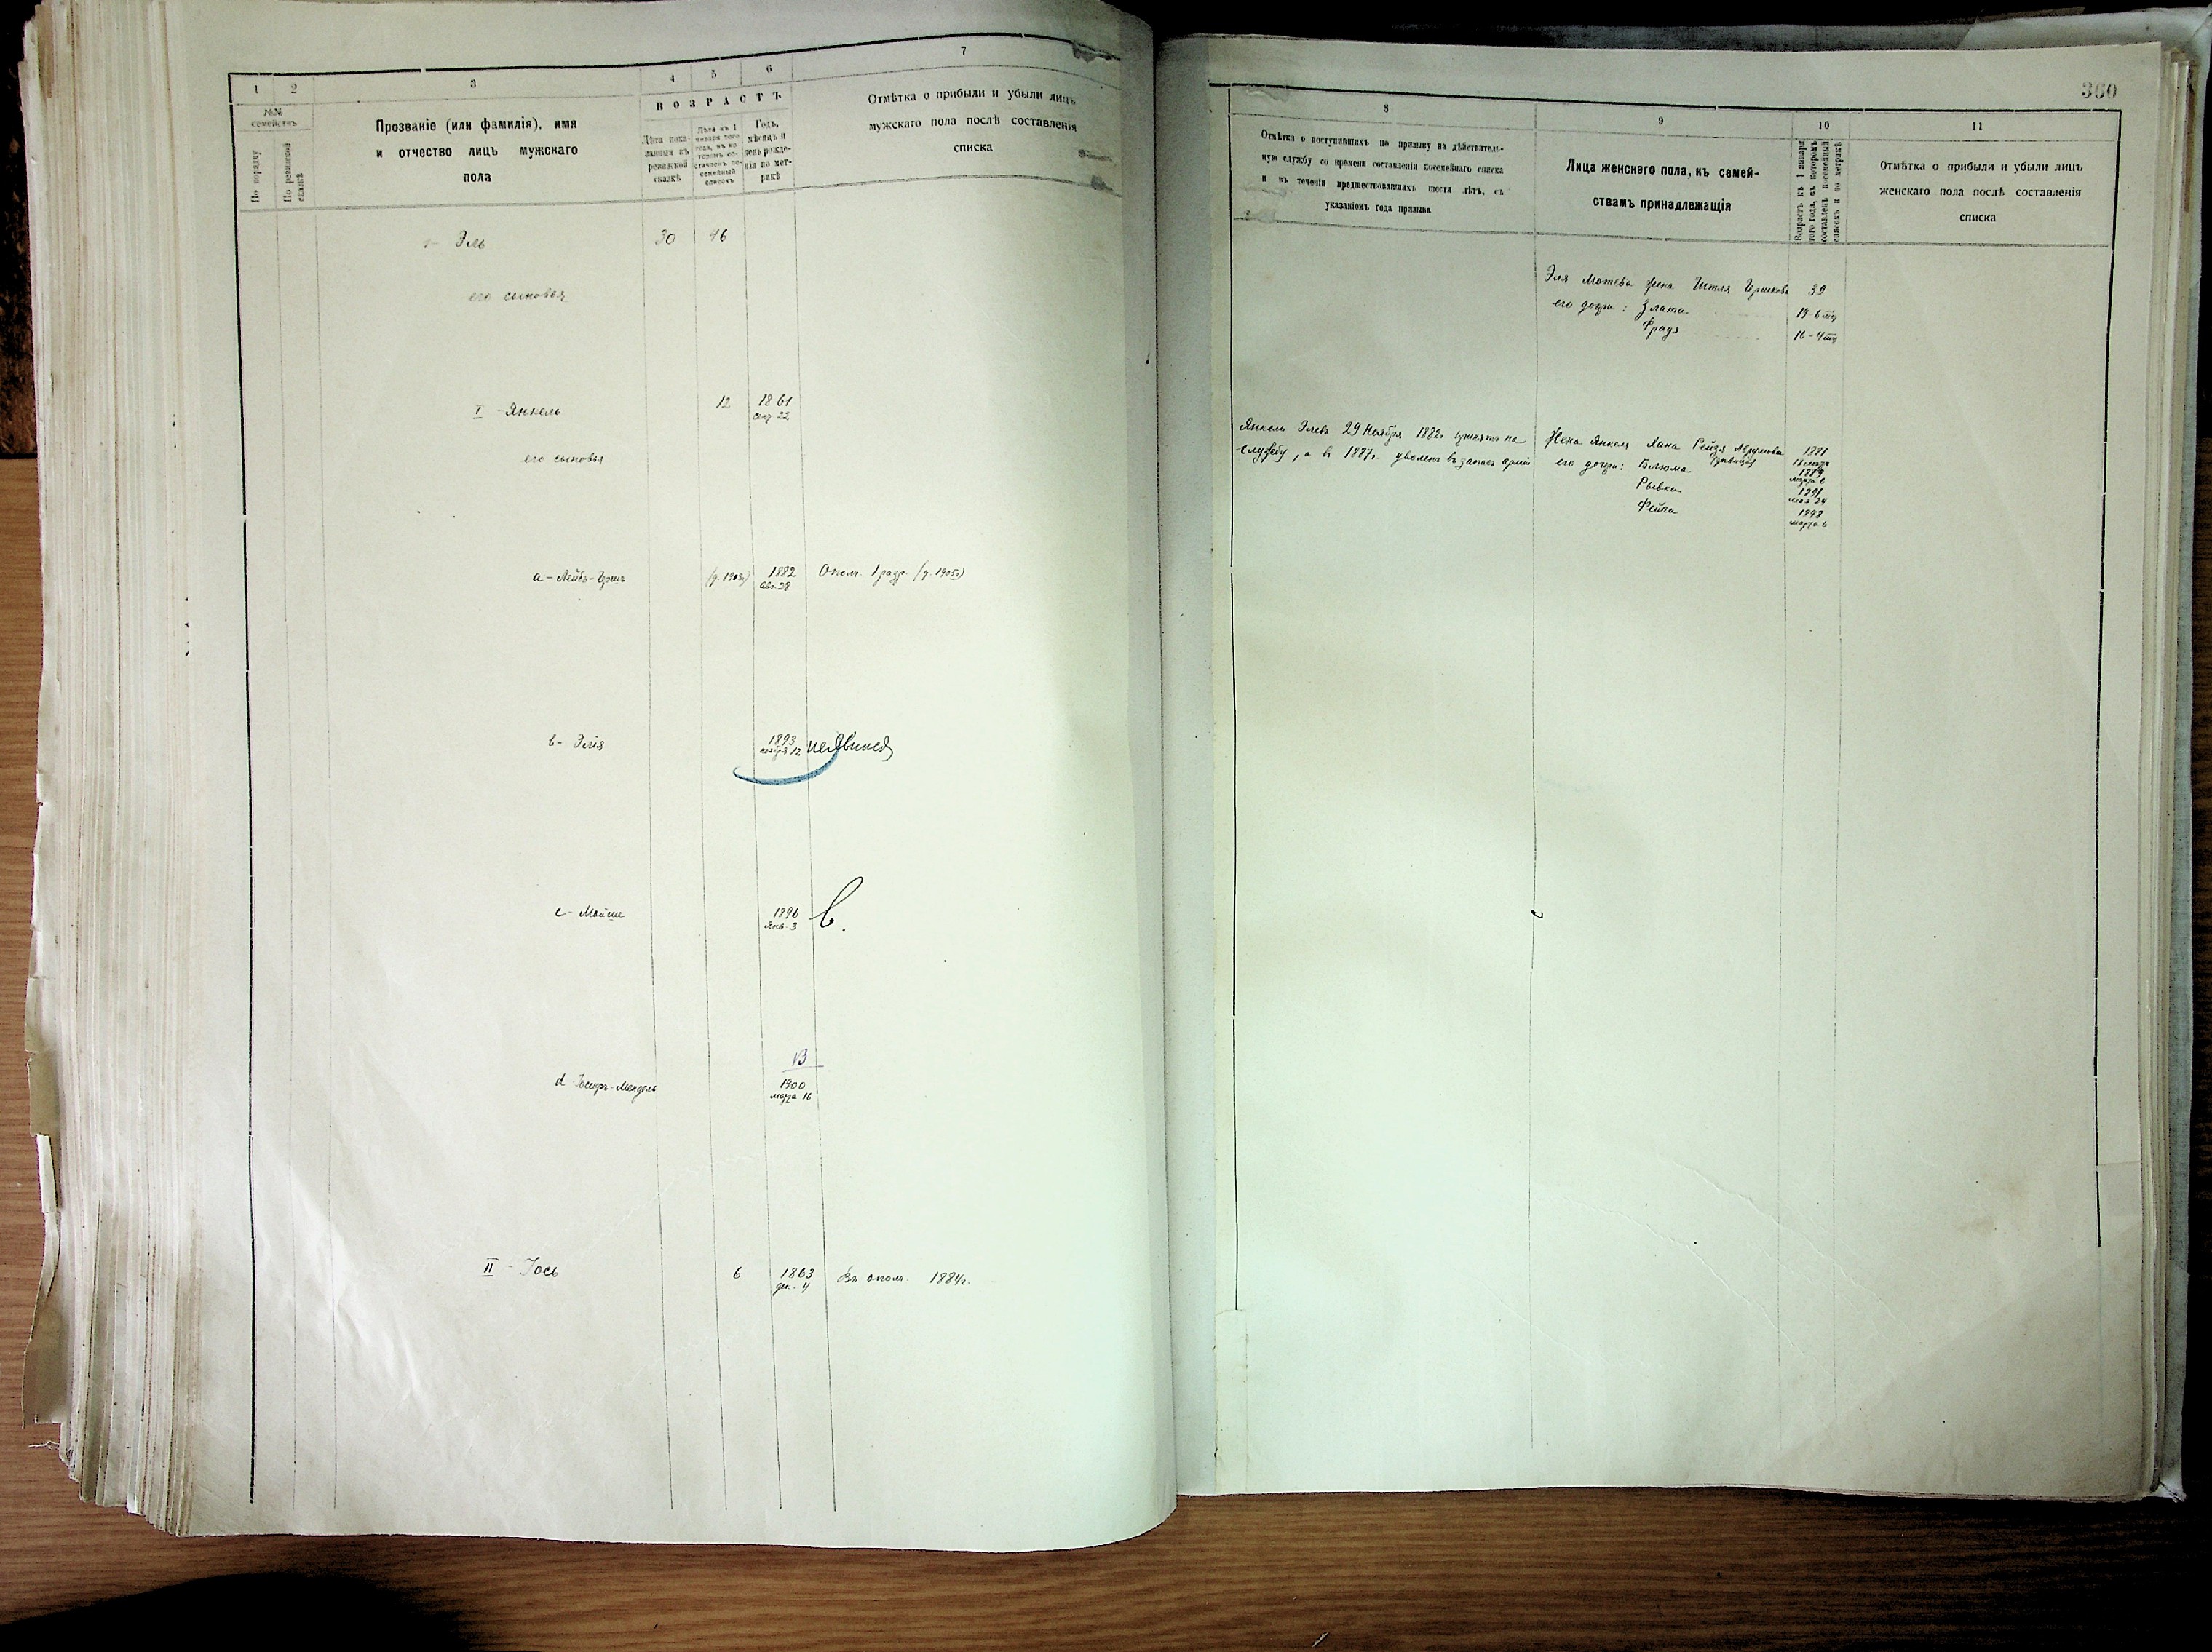 1 2 3 4 5 6 7
№№ семействъ
По порядку
По ревизской сказкѣ
Прозваніе (или фамилія), имя
и отчество лицъ мужскаго
пола
ВОЗРАСТЪ
Лѣта пока-
занныя въ
ревизской
сказкѣ
Лѣта къ 1
января того
года, въ ко-
торомъ со-
ставленъ по-
семейный
списокъ
Годъ,
мѣсяцъ и
день рожде-
нія по мет-
рикѣ
Отмѣтка о прибыли и убыли лицъ
мужскаго пола послѣ составленія
списка
Эль 30 46
его сыновья
I - Янкель 12 1861
сен. 22
его сыновья
а - Лейбъ-Гршъ (д. 1903) 1882 Опол. 1 разр. (д. 1905)
авг. 28
b - Элія 1893 неявился
ноября 12
c - Мойше 1896 В.
Янв. 3
В
d Іосифъ-Мендель 1900
марта 16
II - Іось 6 1863 Въ опол. 1884г.
дек. 4
360
8 9 10 11
Отмѣтка о поступившихъ по призыву на дѣйствитель-
ную службу со времени составленія посемейнаго списка
и въ теченіи предшествовавшихъ шести лѣтъ, съ
указаніемъ года призыва
Лица женскаго пола, къ семей-
ствамъ принадлежащія
Возрастъ къ 1 января
того года, въ которомъ
составленъ посемейный
списокъ и по метрикѣ
Отмѣтка о прибыли и убыли лицъ
женскаго пола послѣ составленія
списка
Эля Мотева жена Гершкова 39
его дочери: Злата 19
Фрада 16
Янкель Элевъ 29 Ноября 1882г. принятъ на
службу, а въ 1887г. уволенъ въ запасъ арміи
Жена Янкеля Хана Рейзя Абрумова
его дочери: Блюма 1889
Рывка 1891
мая 24
Фейга 1898
марта 6